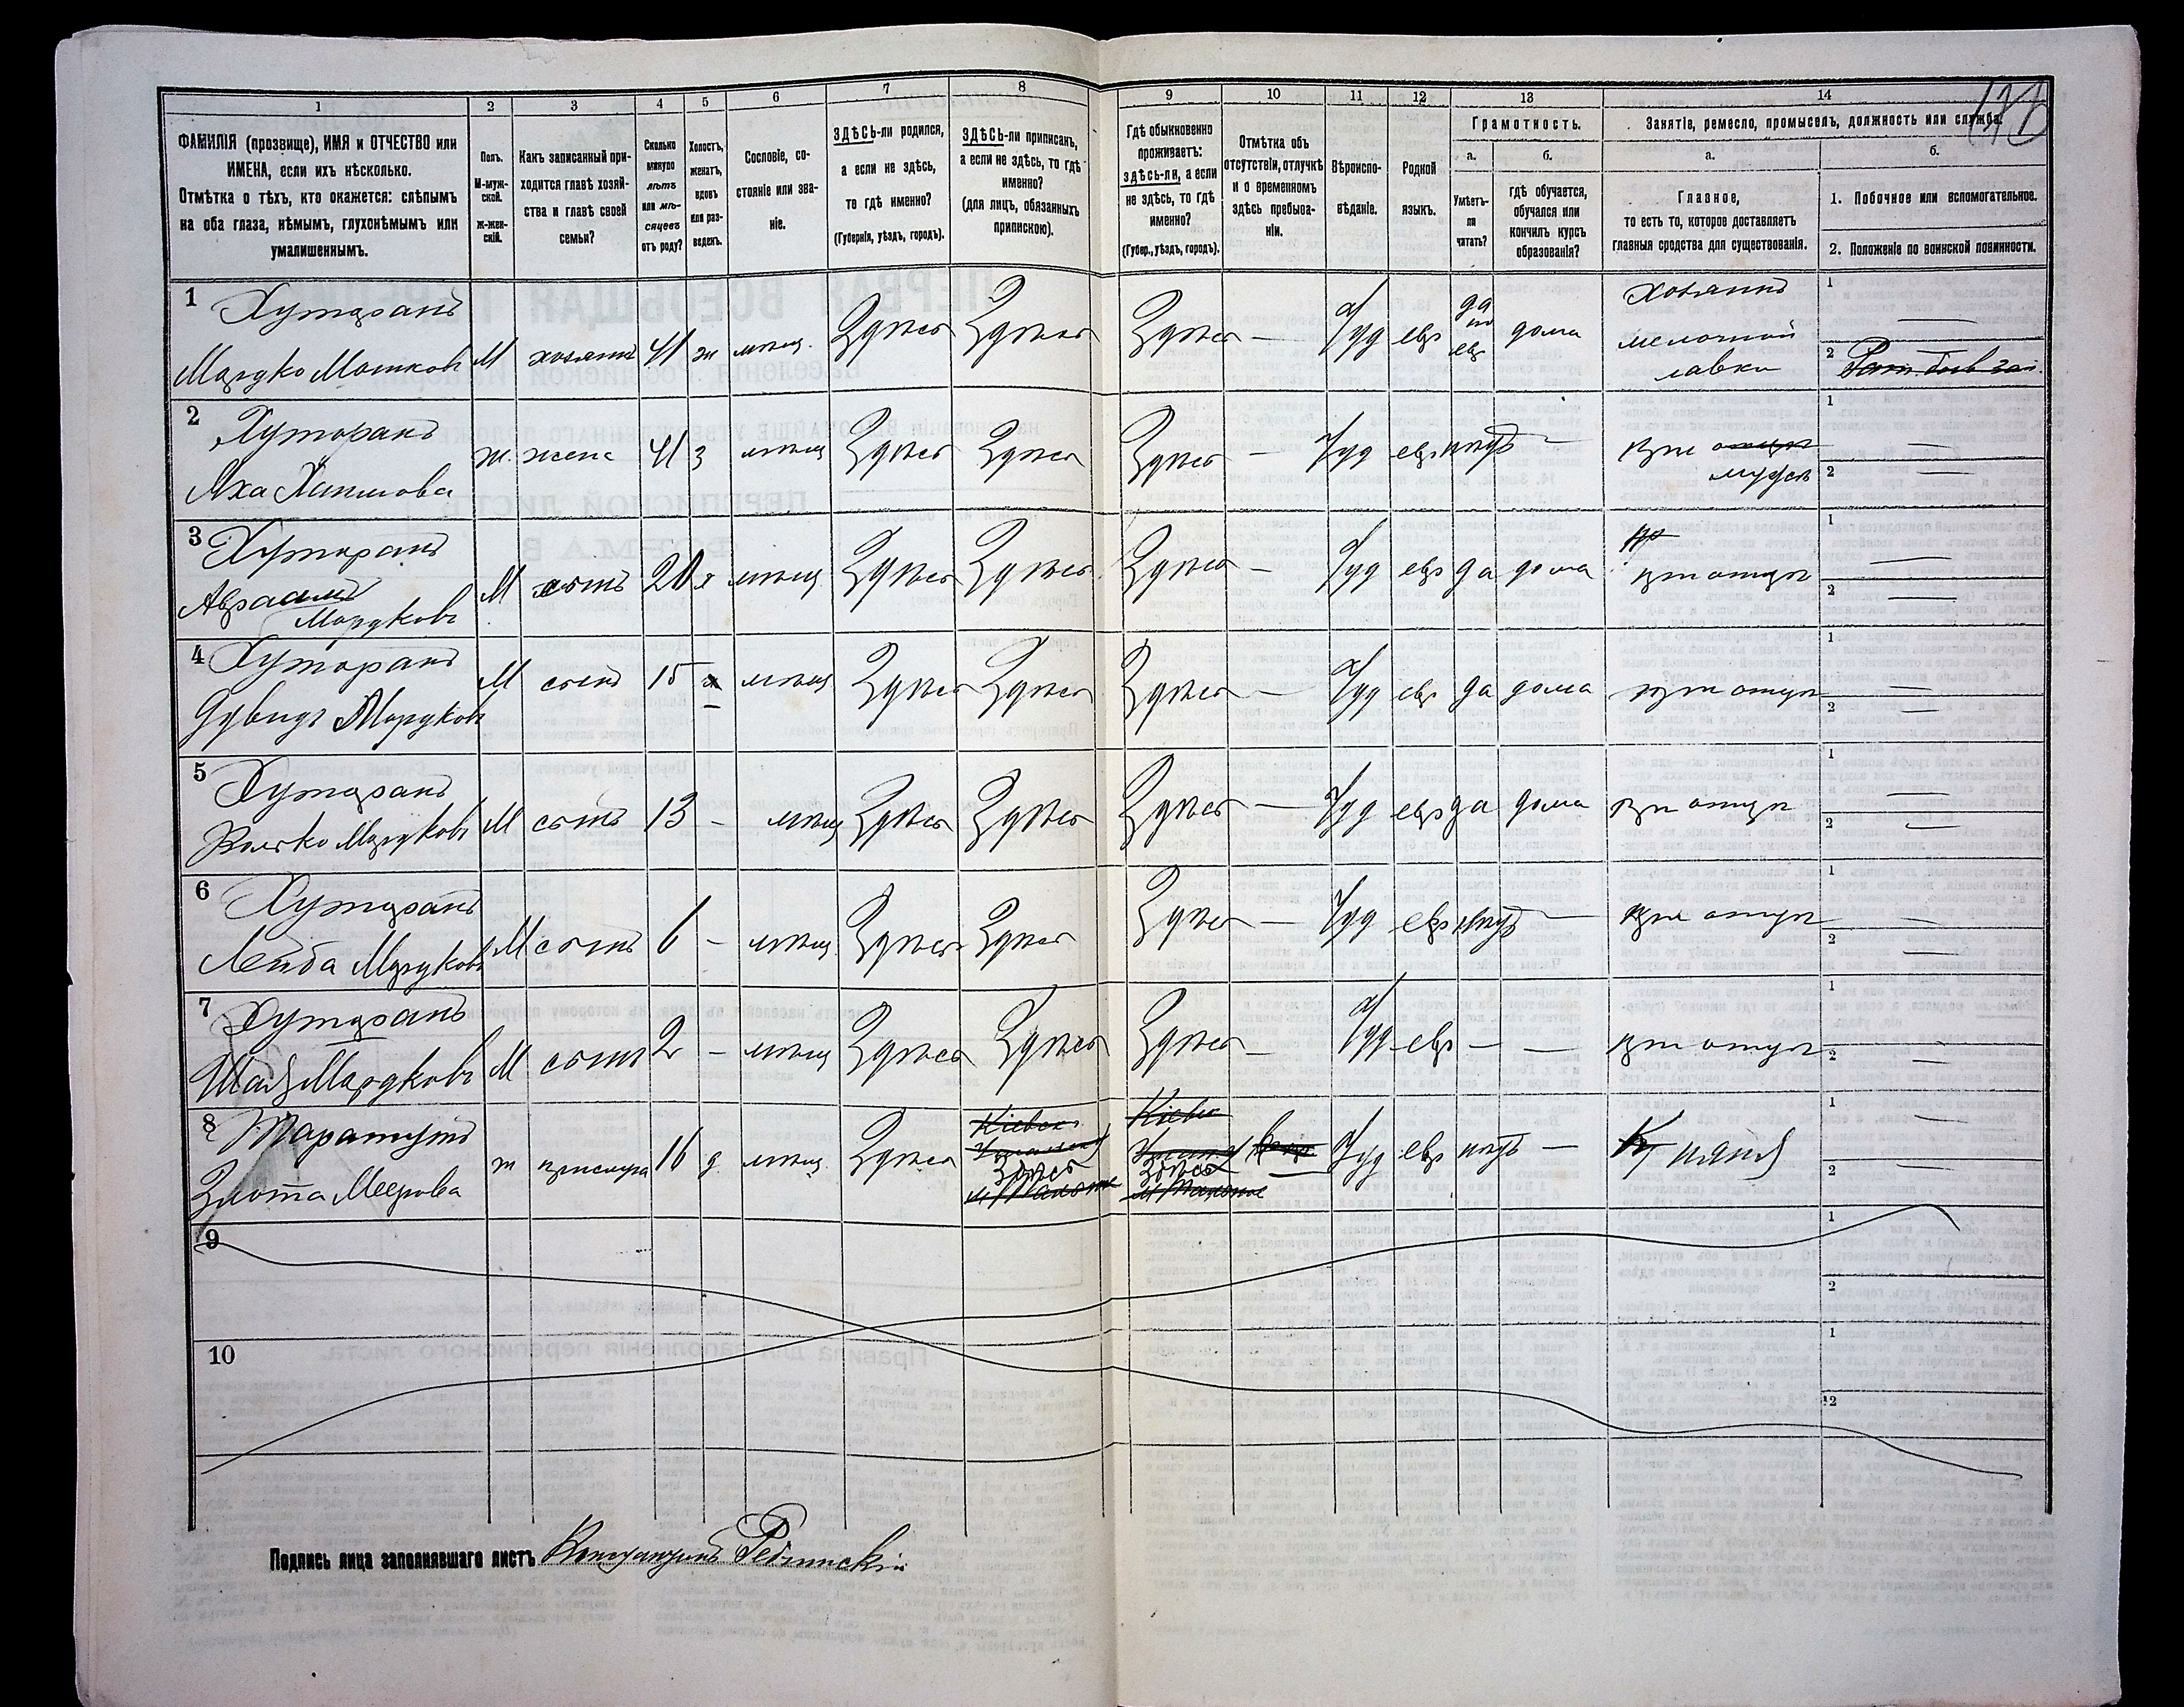 118
1 2 3 4 5 6 7 8 9 10 11 12 13 14
ФАМИЛІЯ (прозвище), ИМЯ и ОТЧЕСТВО или
ИМЕНА, если ихъ нѣсколько.
Отмѣтка о тѣхъ, кто окажется: слѣпымъ
на оба глаза, нѣмымъ, глухонѣмымъ или
умалишеннымъ.
Полъ.
М-муж-
ской.
ж-жен-
скій.
Какъ записанный при-
ходится главѣ хозяй-
ства и главѣ своей
семьи?
Сколько
минуло
лѣтъ
или мѣ-
сяцевъ
отъ роду?
Холостъ,
женатъ,
вдовъ
или раз-
веденъ.
Сословіе, со-
стояніе или зва-
ніе.
ЗДѢСЬ-ли родился,
а если не здѣсь,
то гдѣ именно?
(Губернія, уѣздъ, городъ).
ЗДѢСЬ-ли приписанъ,
а если не здѣсь, то гдѣ
именно?
(для лицъ, обязанныхъ
припискою).
Гдѣ обыкновенно
проживаетъ:
здѣсь-ли, а если
не здѣсь, то гдѣ
именно?
(Губер., уѣздъ, городъ).
Отмѣтка объ
отсутствіи, отлучкѣ
и о временномъ
здѣсь пребыва-
ніи.
Вѣроиспо-
вѣданіе.
Родной
языкъ.
Грамотность.
а.
Умѣетъ-
ли
читать?
б.
гдѣ обучается,
обучался или
кончилъ курсъ
образованія?
Занятіе, ремесло, промыселъ, должность или служба.
а.
Главное,
то есть то, которое доставляетъ
главныя средства для существованія.
б.
1. Побочное или вспомогательное.
2. Положеніе по воинской повинности.
1 Хуторанъ
Мардко Мошковъ М хозяинъ 41 ж мѣщ. Здѣсь Здѣсь Здѣсь — Іуд евр да по евр дома Хозяинъ мелочной лавки 1 — 2
2 Хуторанъ
Яха Хаимова ж. жена 41 з мѣщ Здѣсь Здѣсь Здѣсь — Іуд евр нѣтъ — при мужѣ 1 — 2 —
3 Хуторанъ
Авраамъ Мардковъ М сынъ 20 х мѣщ Здѣсь Здѣсь Здѣсь — Іуд евр да дома при отцѣ 1 — 2 —
4 Хуторанъ
Мардковъ М сынъ 15 — мѣщ Здѣсь Здѣсь Здѣсь — Іуд евр да дома при отцѣ 1 — 2 —
5 Хуторанъ
Волько Мардковъ М сынъ 13 — мѣщ Здѣсь Здѣсь Здѣсь — Іуд евр да дома при отцѣ 1 — 2 —
6 Хуторанъ
Лейба Мардковъ М сынъ 6 — мѣщ Здѣсь Здѣсь Здѣсь — Іуд евр нѣтъ — при отцѣ 1 — 2 —
7 Хуторанъ
Шая Мардковъ М сынъ 2 — мѣщ Здѣсь Здѣсь Здѣсь — Іуд евр — — при отцѣ 1 — 2 —
8 Таратутъ
Злота Меерова ж прислуга 16 д мѣщ. Здѣсь Здѣсь Здѣсь — Іуд евр нѣтъ — няня 1 — 2 —
9 1 2
10 1 2
Подпись лица заполнявшаго листъ Константинъ